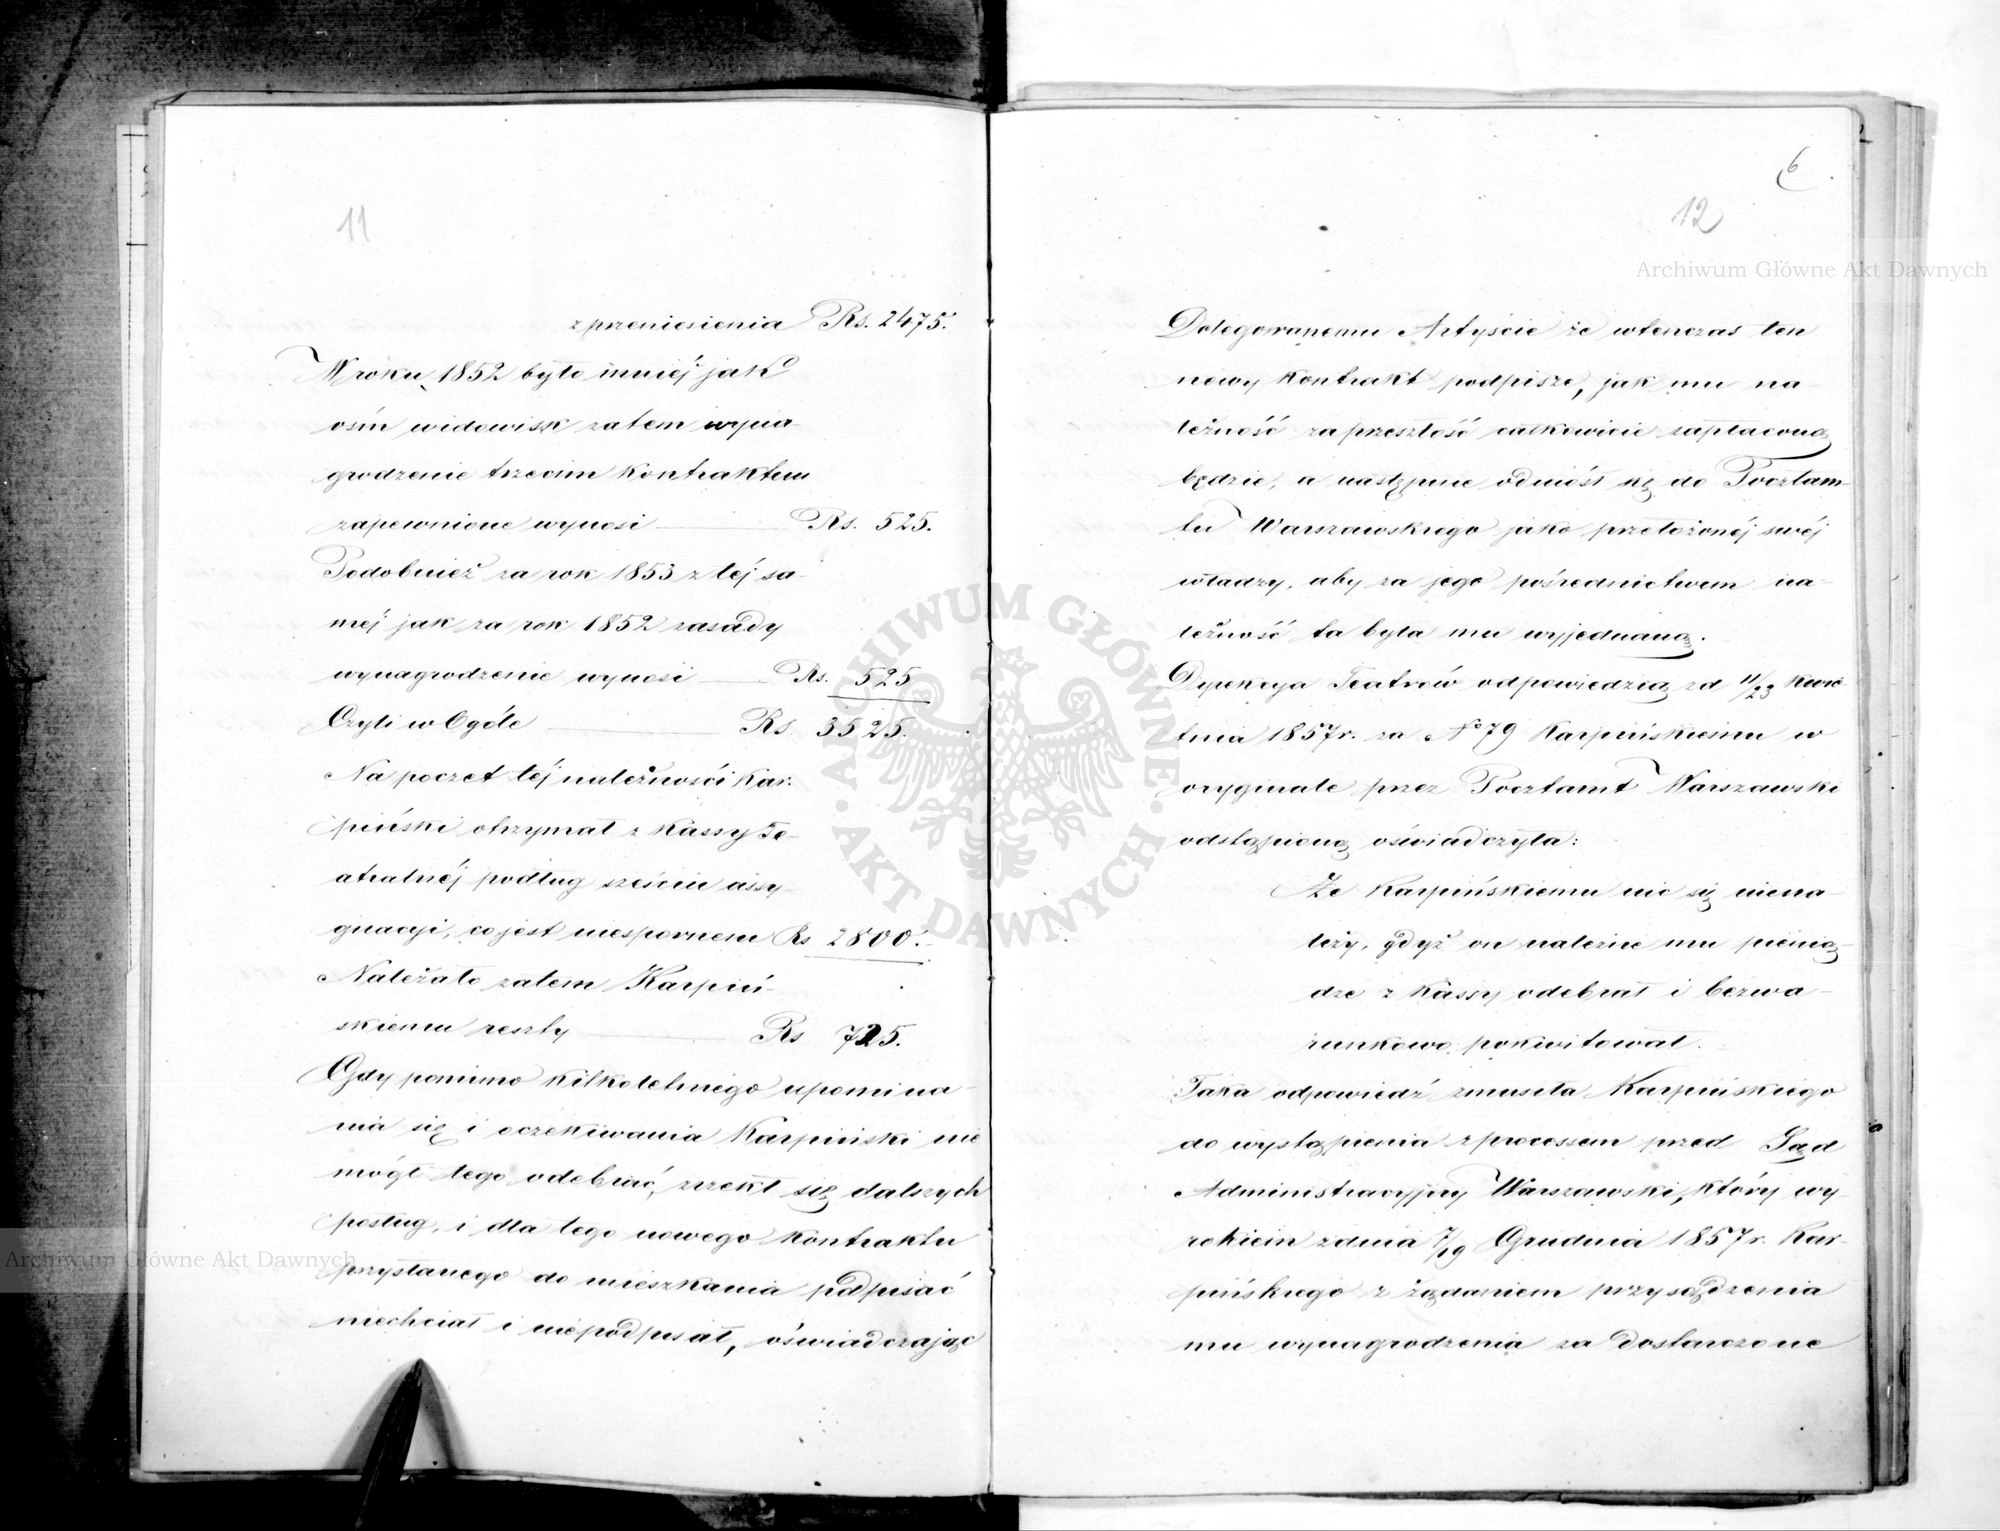 11
z przeniesienia Rs. 2475.
W roku 1852 było mniéj jak
ośm widowisk zatem wyna-
grodzenie trzecim kontraktem
zapewnione wynosi Rs. 525.
Podobnież za rok 1853 z téj sa-
méj jak za rok 1852 zasady
wynagrodzenie wynosi Rs. 525
Czyli w Ogóle Rs. 3525.
Na poczet téj należności Kar-
piński otrzymał z Kassy Te-
atralnéj podług sześciu assy-
gnacyi, co jest niespornem Rs 2800.
Należało zatem Karpiń-
skiemu reszty Rs 725.
Gdy pomimo kilkoletniego upomina-
nia się i oczekiwania Karpiński nie
mógł tego odebrać, zrzekł się dalszych
posług, i dla tego nowego kontraktu
przysłanego do mieszkania podpisać
niechciał i niepodpisał, oświadczając
6
12
Delegowanemu Artyście że wtenczas ten
nowy kontrakt podpisze, jak mu na-
leżność za przeszłość całkowicie zapłaconą
będzie, a następnie odniósł się do Pocztam-
tu Warszawskiego jako przełożonéj swéj
władzy, aby za jego pośrednictwem na-
leżność ta była mu wyjednaną.
Dyrekcya Teatrów odpowiedzią z d 11/23 Kwie-
tnia 1857 r. za No 79 Karpińskiemu w
oryginale przez Pocztamt Warszawski
odstąpioną oświadczyła:
Że Karpińskiemu nic się niena-
leży, gdyż on należne mu pienią-
dze z Kassy odebrał i bezwa-
runkowo pokwitował.
Taka odpowiedź zmusiła Karpińskiego
do wystąpienia z processem przed Sąd
Administracyjny Warszawski, który wy-
rokiem z dnia 7/19 Grudnia 1857 r. Kar-
pińskiego z żądaniem przysądzenia
mu wynagrodzenia za dostarczone
Archiwum Główne Akt Dawnych
Archiwum Główne Akt Dawnych
ARCHIWUM GŁÓWNE AKT DAWNYCH